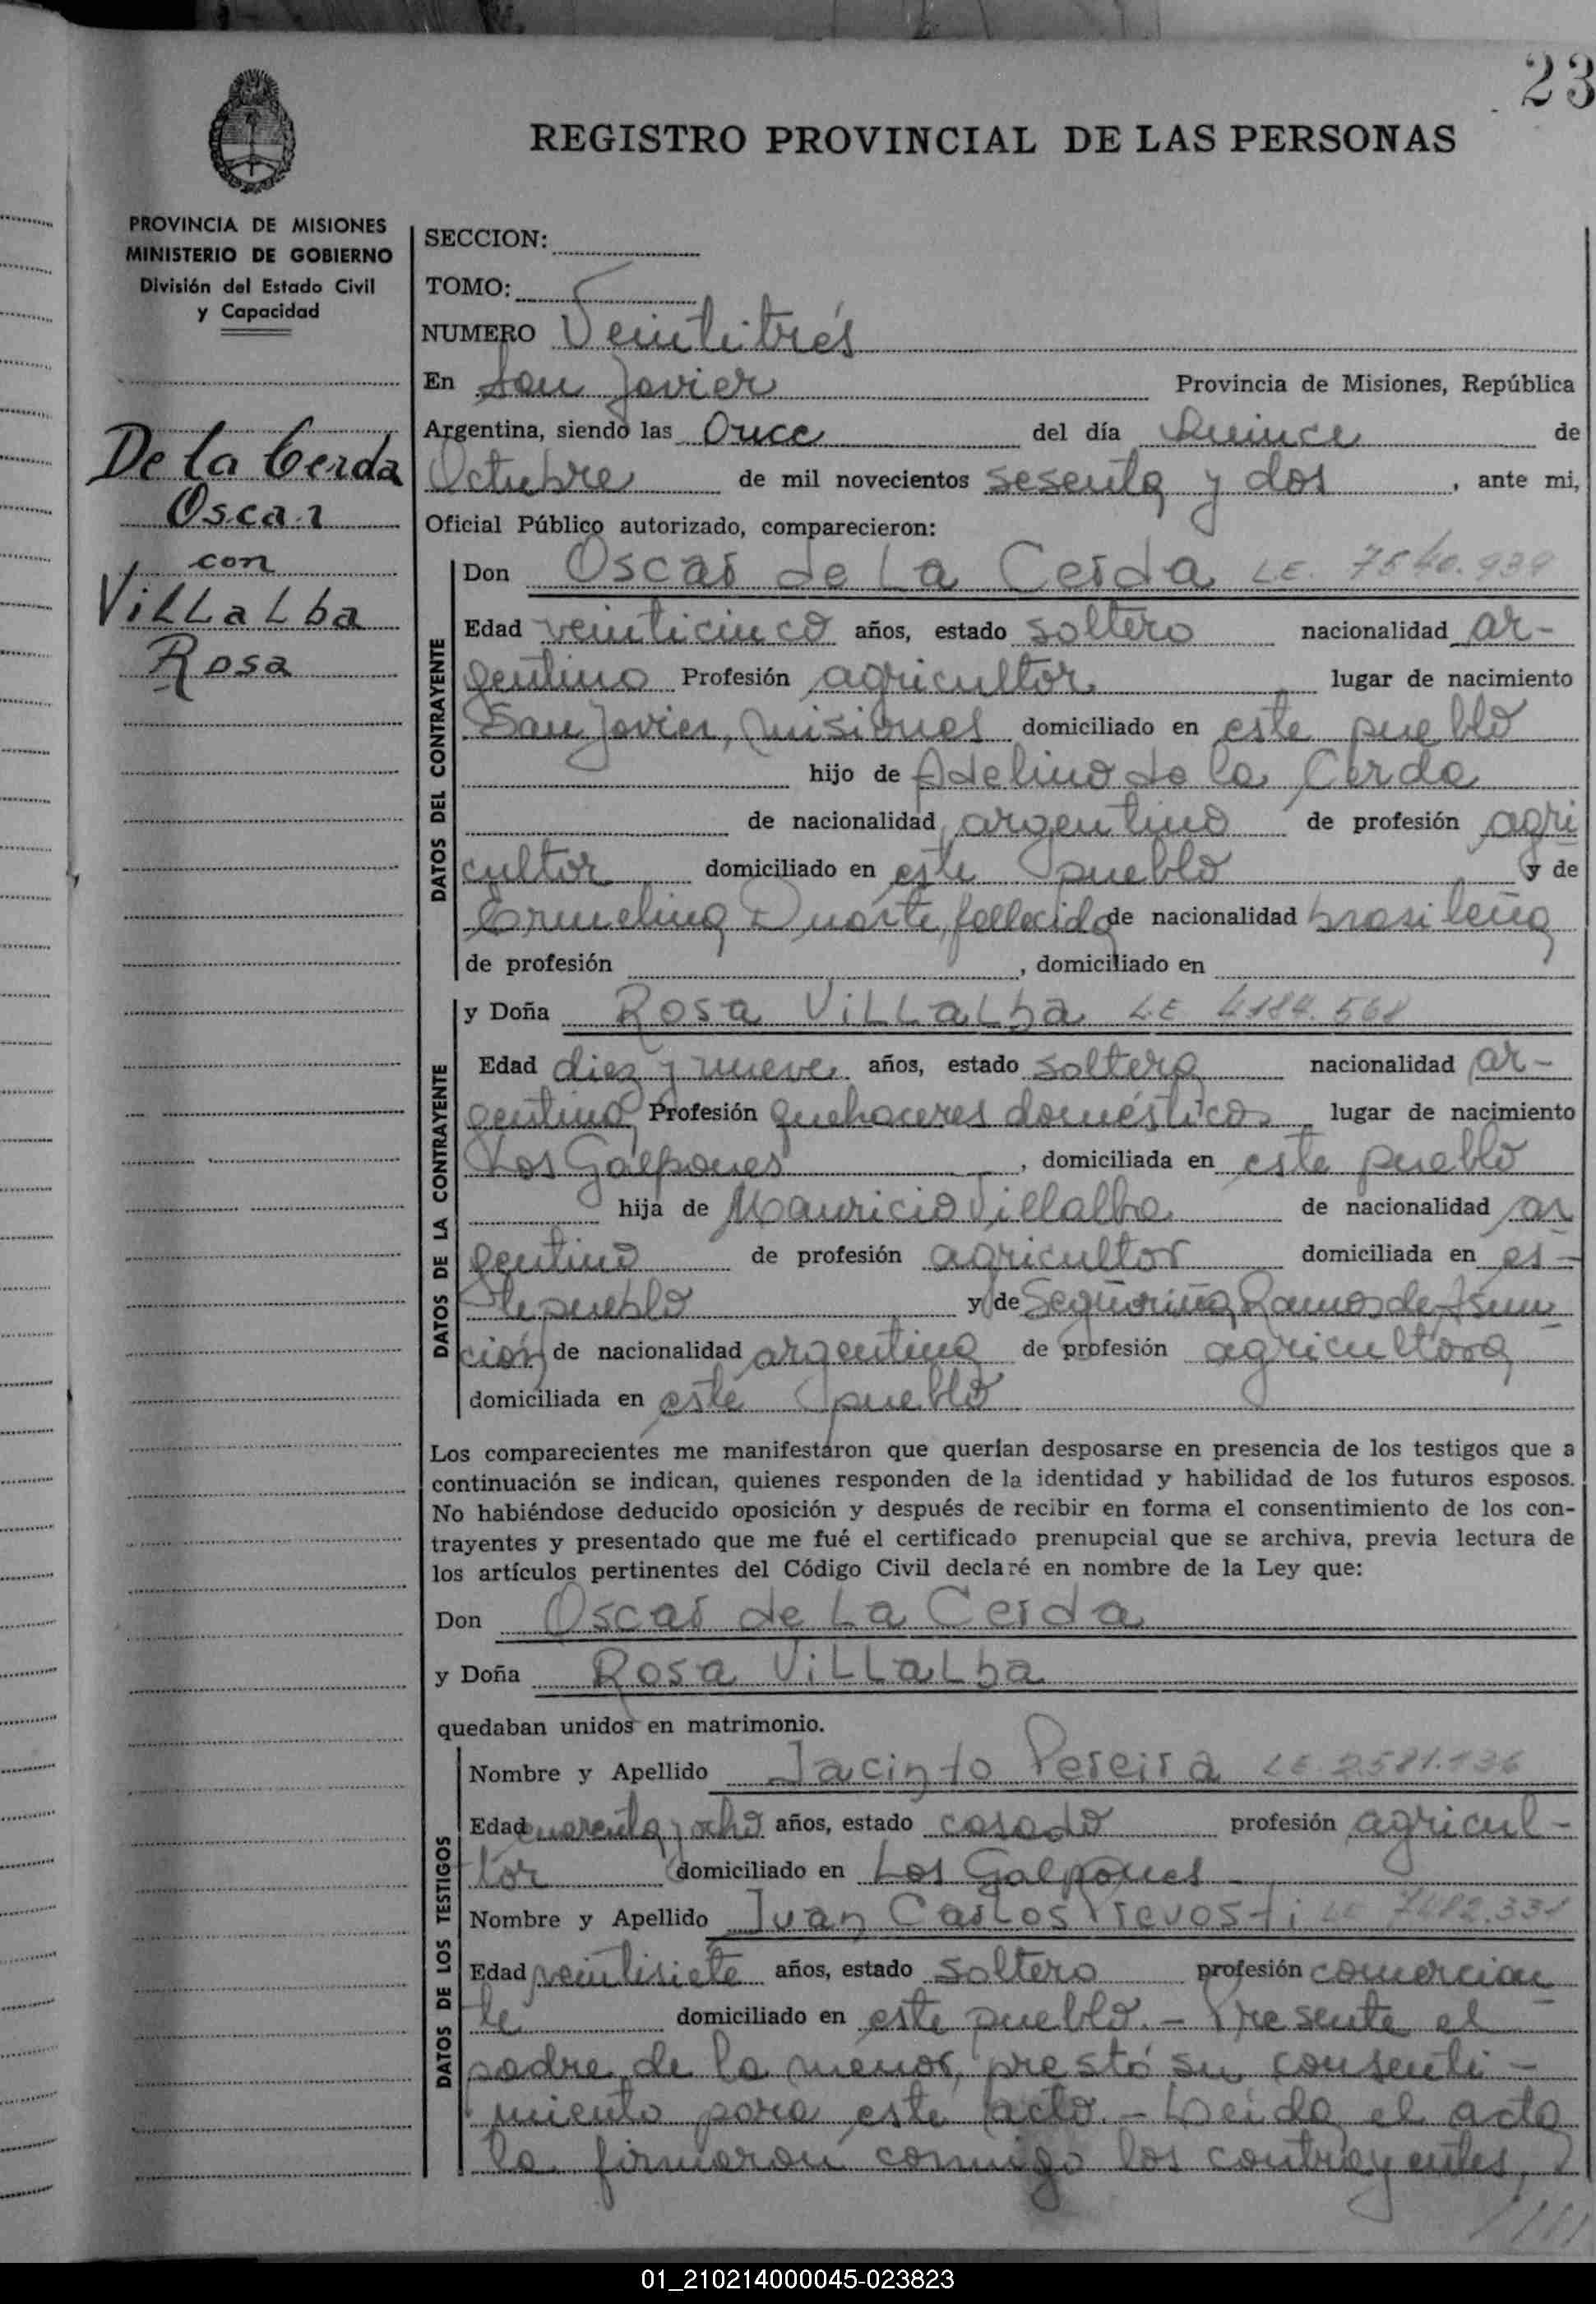 23
REGISTRO PROVINCIAL DE LAS PERSONAS
PROVINCIA DE MISIONES
MINISTERIO DE GOBIERNO
División del Estado Civil
y Capacidad
De la Cerda
Oscar
con
ViLLaLba
Rosa
SECCION:
TOMO:
NUMERO Veintitrés
En San Javier Provincia de Misiones, República
Argentina, siendo las Once del día Quince de
Octubre de mil novecientos sesenta y dos, ante mi,
Oficial Público autorizado, comparecieron:
DATOS DEL CONTRAYENTE
Don Oscar de La Cerda L.E. 7540.939
Edad veinticinco años, estado soltero nacionalidad ar-
gentino Profesión agricultor lugar de nacimiento
San Javier, Misiones domiciliado en este pueblo
hijo de Adelino de la Cerda
de nacionalidad argentino de profesión agri
cultor domiciliado en este pueblo y de
Ermelina Duarte, fallecida de nacionalidad brasileña
de profesión , domiciliado en
DATOS DE LA CONTRAYENTE
y Doña Rosa ViLLaLba L.E 4184.568
Edad diez y nueve años, estado soltera nacionalidad ar-
gentina Profesión quehaceres domésticos lugar de nacimiento
Los Galpones , domiciliada en este pueblo
hija de Mauricio Villalba de nacionalidad ar
gentino de profesión agricultor domiciliada en es-
te pueblo y de Señorina Ramos de Asun
ción de nacionalidad argentina de profesión agricultora
domiciliada en este pueblo
Los comparecientes me manifestaron que querían desposarse en presencia de los testigos que a
continuación se indican, quienes responden de la identidad y habilidad de los futuros esposos.
No habiéndose deducido oposición y después de recibir en forma el consentimiento de los con-
trayentes y presentado que me fué el certificado prenupcial que se archiva, previa lectura de
los artículos pertinentes del Código Civil declaré en nombre de la Ley que:
Don Oscar de La Cerda
y Doña Rosa ViLLaLba
quedaban unidos en matrimonio.
DATOS DE LOS TESTIGOS
Nombre y Apellido Jacinto Pereira LE 2581.136
Edad cuarenta y ocho años, estado casado profesión agricul-
tor domiciliado en Los Galpones
Nombre y Apellido Juan Carlos Prevosti LE 7482.331
Edad veintisiete años, estado soltero profesión comercian
te domiciliado en este pueblo.- Presente el
padre de la menor, prestó su consenti-
miento para este acto.- Leída el acta
la firmaron conmigo los contrayentes,
////
01_210214000045-023823